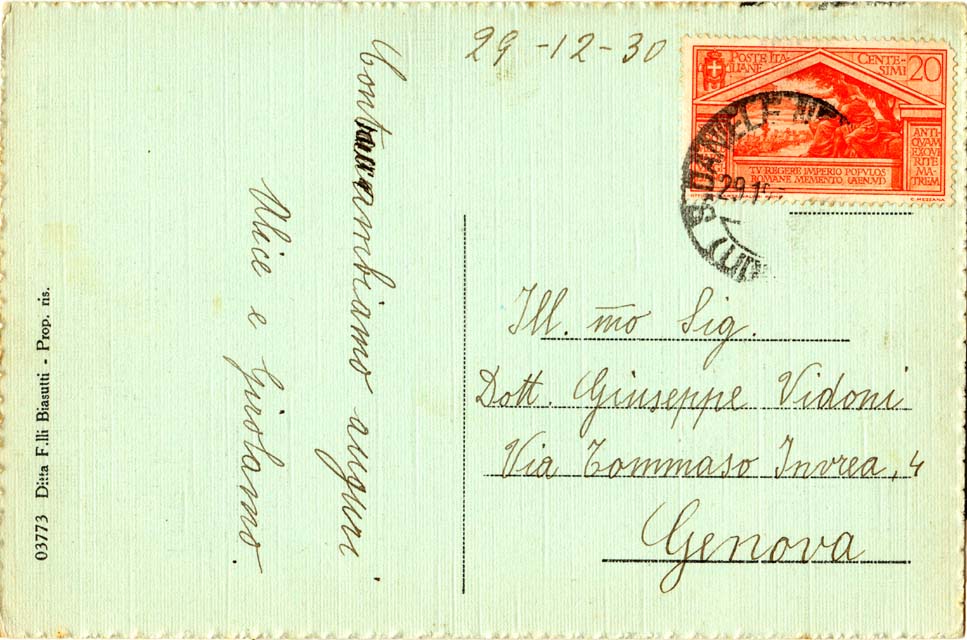 29-12-30
POSTE ITALIANE
CENTESIMI 20
ANTI
QVAM
EXQVI
RITE
MA
TREM
TV REGERE IMPERIO POPVLOS
ROMANE MEMENTO (AEN.VI)
C. MEZZANA
S. DANIELE
29.1
Contraccambiamo auguri
Alice e Girolamo.
Ill.mo Sig.
Dott. Giuseppe Vidoni
Via Tommaso Invrea, 4
Genova
03773 Ditta F.lli Biasutti - Prop. ris.